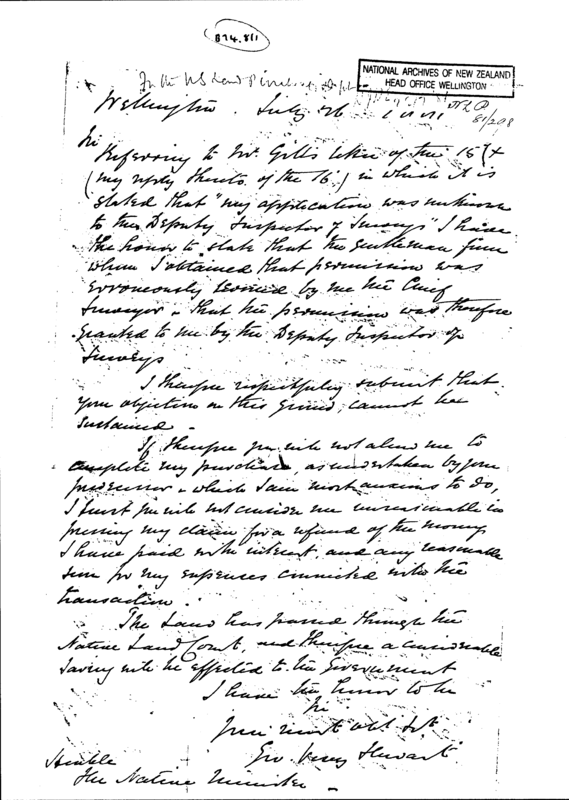 874.811
NATIONAL ARCHIVES OF NEW ZEALAND
HEAD OFFICE WELLINGTON
In the
Wellington. July 26
NLP
81/298
Sir
Referring to Mr. Gill's letter of the 15th
(my reply thereto of the 16.) in which it is
stated that "my application was unknown
to the Deputy Inspector of Surveys" I have
the honor to state that the gentleman from
whom I obtained that permission was
erroneously termed by me the Chief
Surveyor - that the permission was therefore
granted to me by the Deputy Inspector of
Surveys
I therefore respectfully submit that
your objection on this ground, cannot be
sustained -
If therefore you will not allow me to
complete my purchase, as undertaken by your
predecessor - which I am most anxious to do,
I trust you will not consider me unreasonable in
pressing my claim for a refund of the money
I have paid with interest, and any reasonable
sum for my expenses connected with the
transaction.
The Land has passed through the
Native Land Court, and therefore a considerable
saving will be effected to the Government
I have the honor to be
Sir
Your most obt Svt
Geo. Vesey Stewart
Honble
The Native Minister -